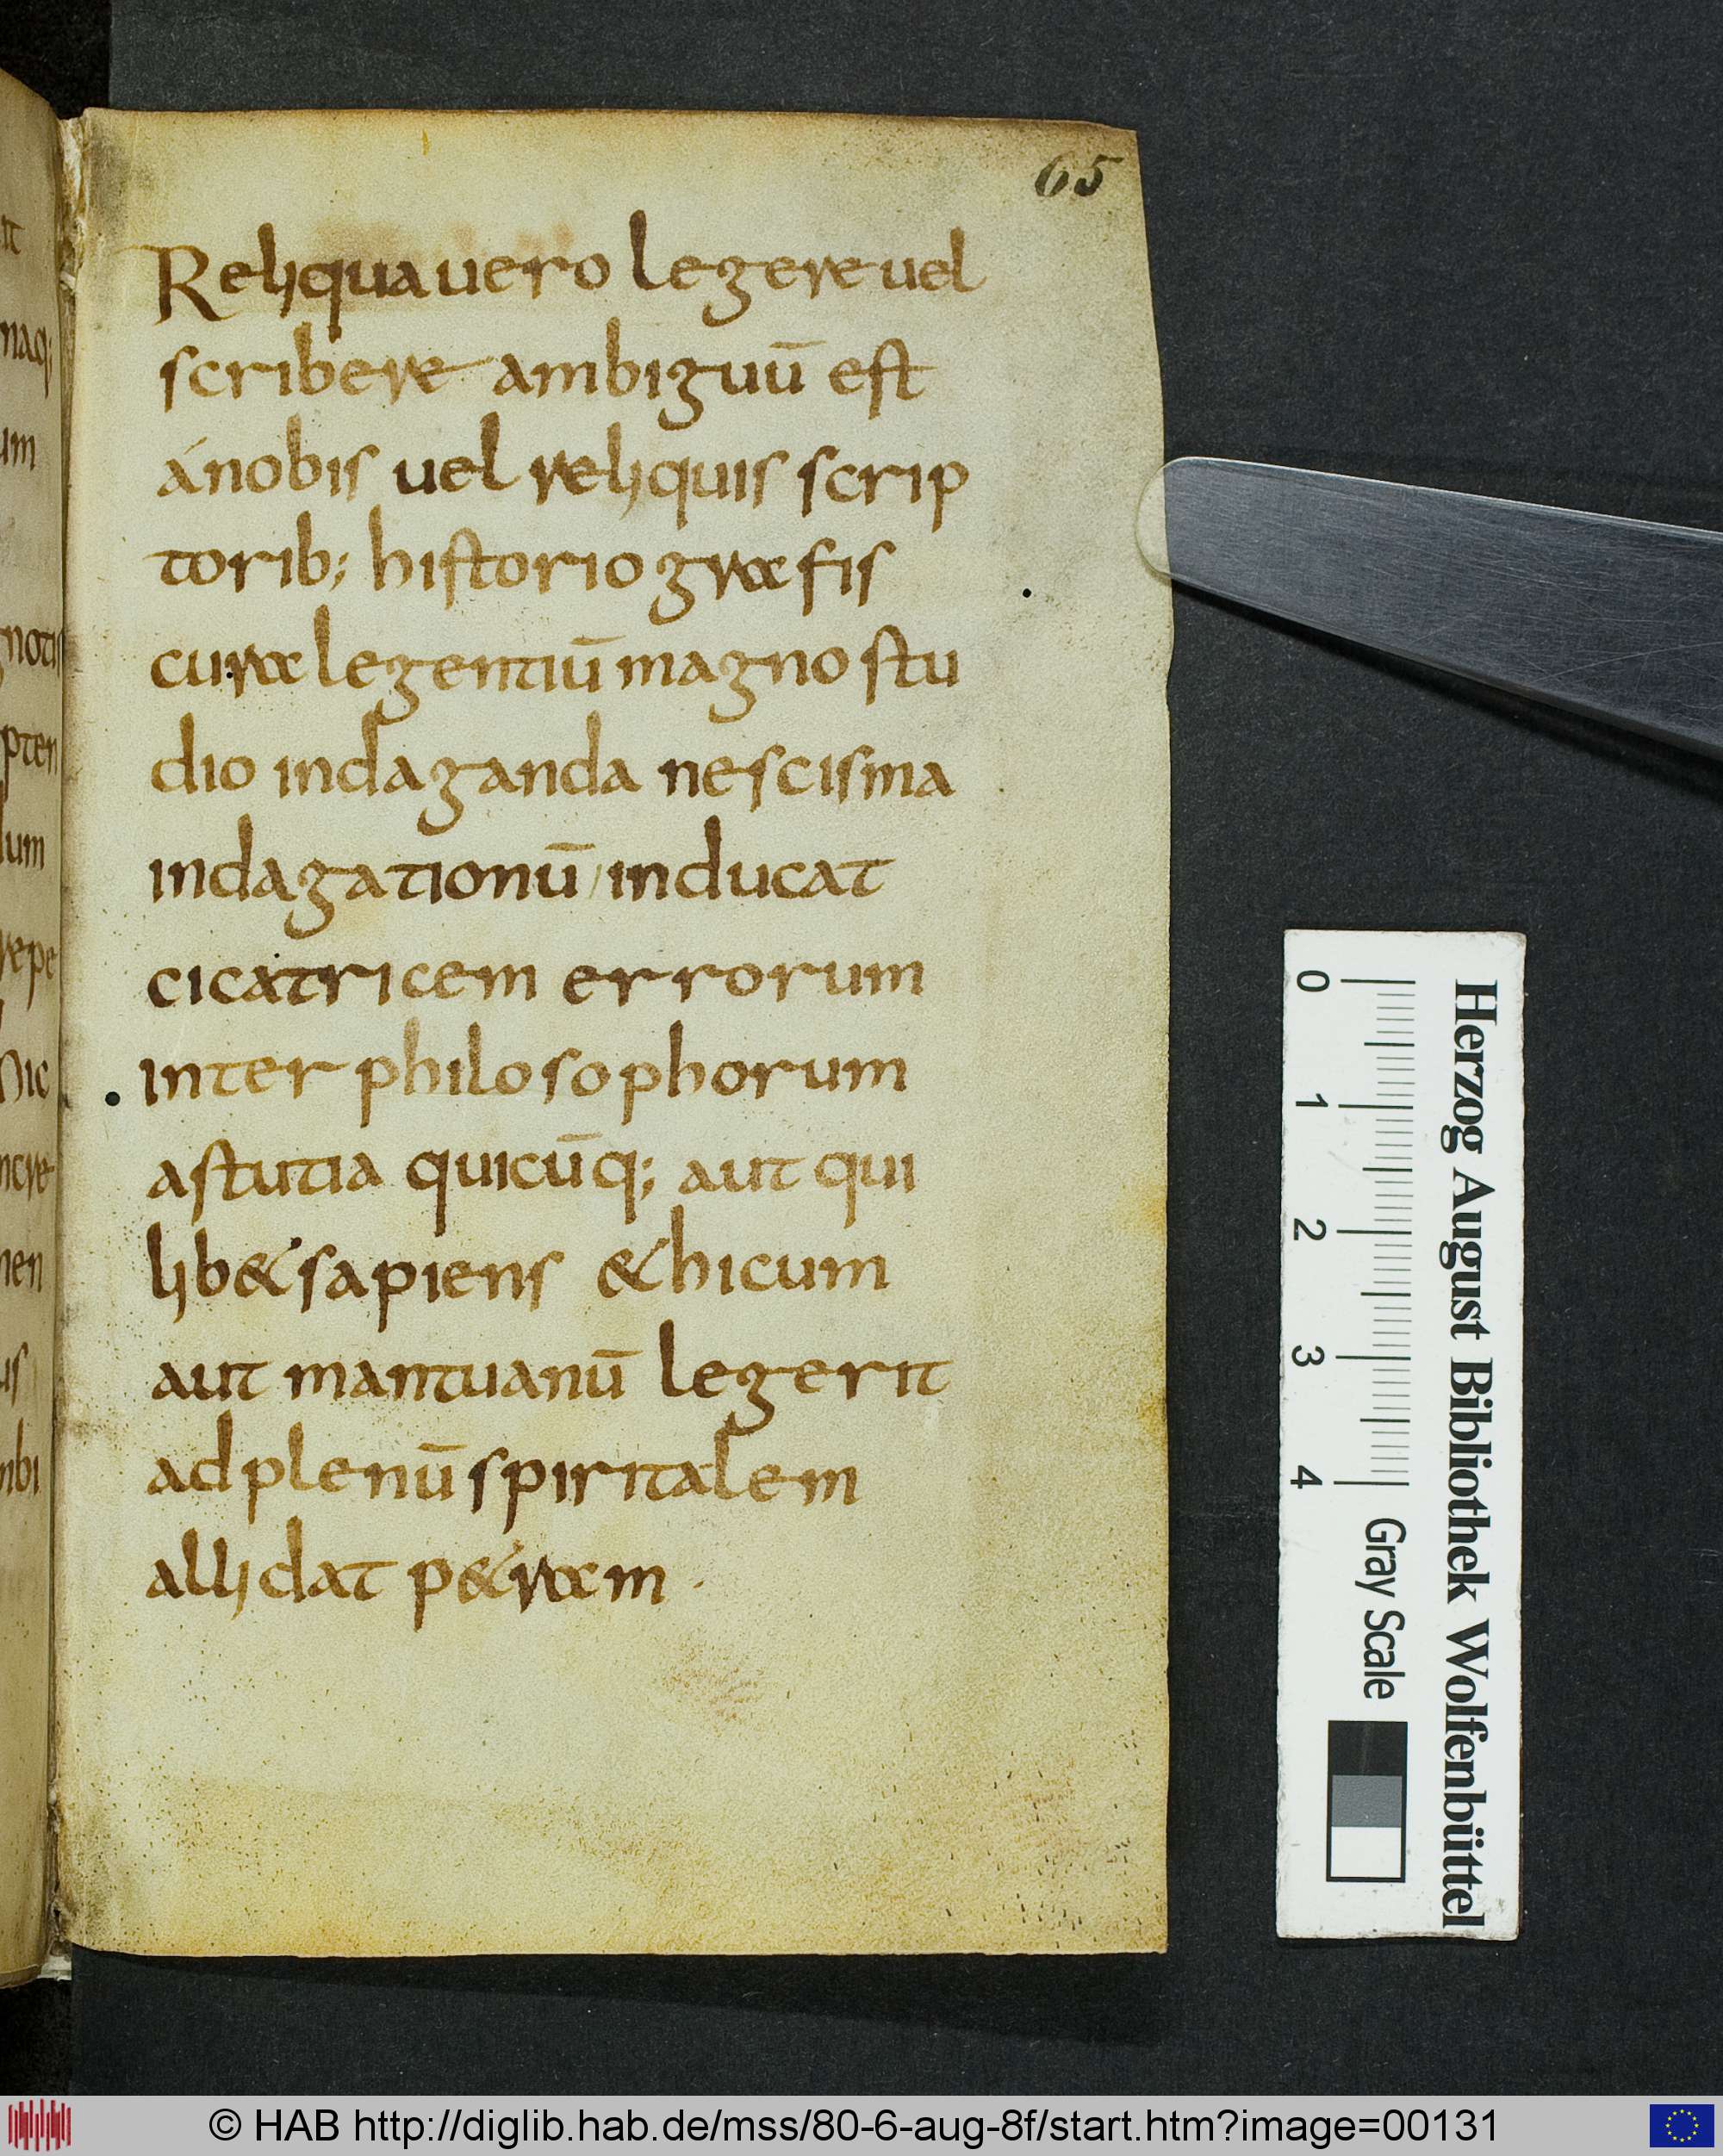 65
Reliqua uero legere uel
scribere ambiguū est
ánobis uel reliquis scrip
torib; historiografis
cura legentiū magno stu
dio indaganda nescisma
indagationū inducat
cicatricem errorum
inter philosophorum
astutia quicūq; aut qui
lib& sapiens & hicum
aut mantuanū legerit
adplenū spiritalem
allidat p&ram .
it
naq;
um
gnotis
pten
lum
repe
hic
ncre
nen
us
nbi
0 1 2 3 4 Gray Scale
Herzog August Bibliothek Wolfenbüttel
© HAB http://diglib.hab.de/mss/80-6-aug-8f/start.htm?image=00131